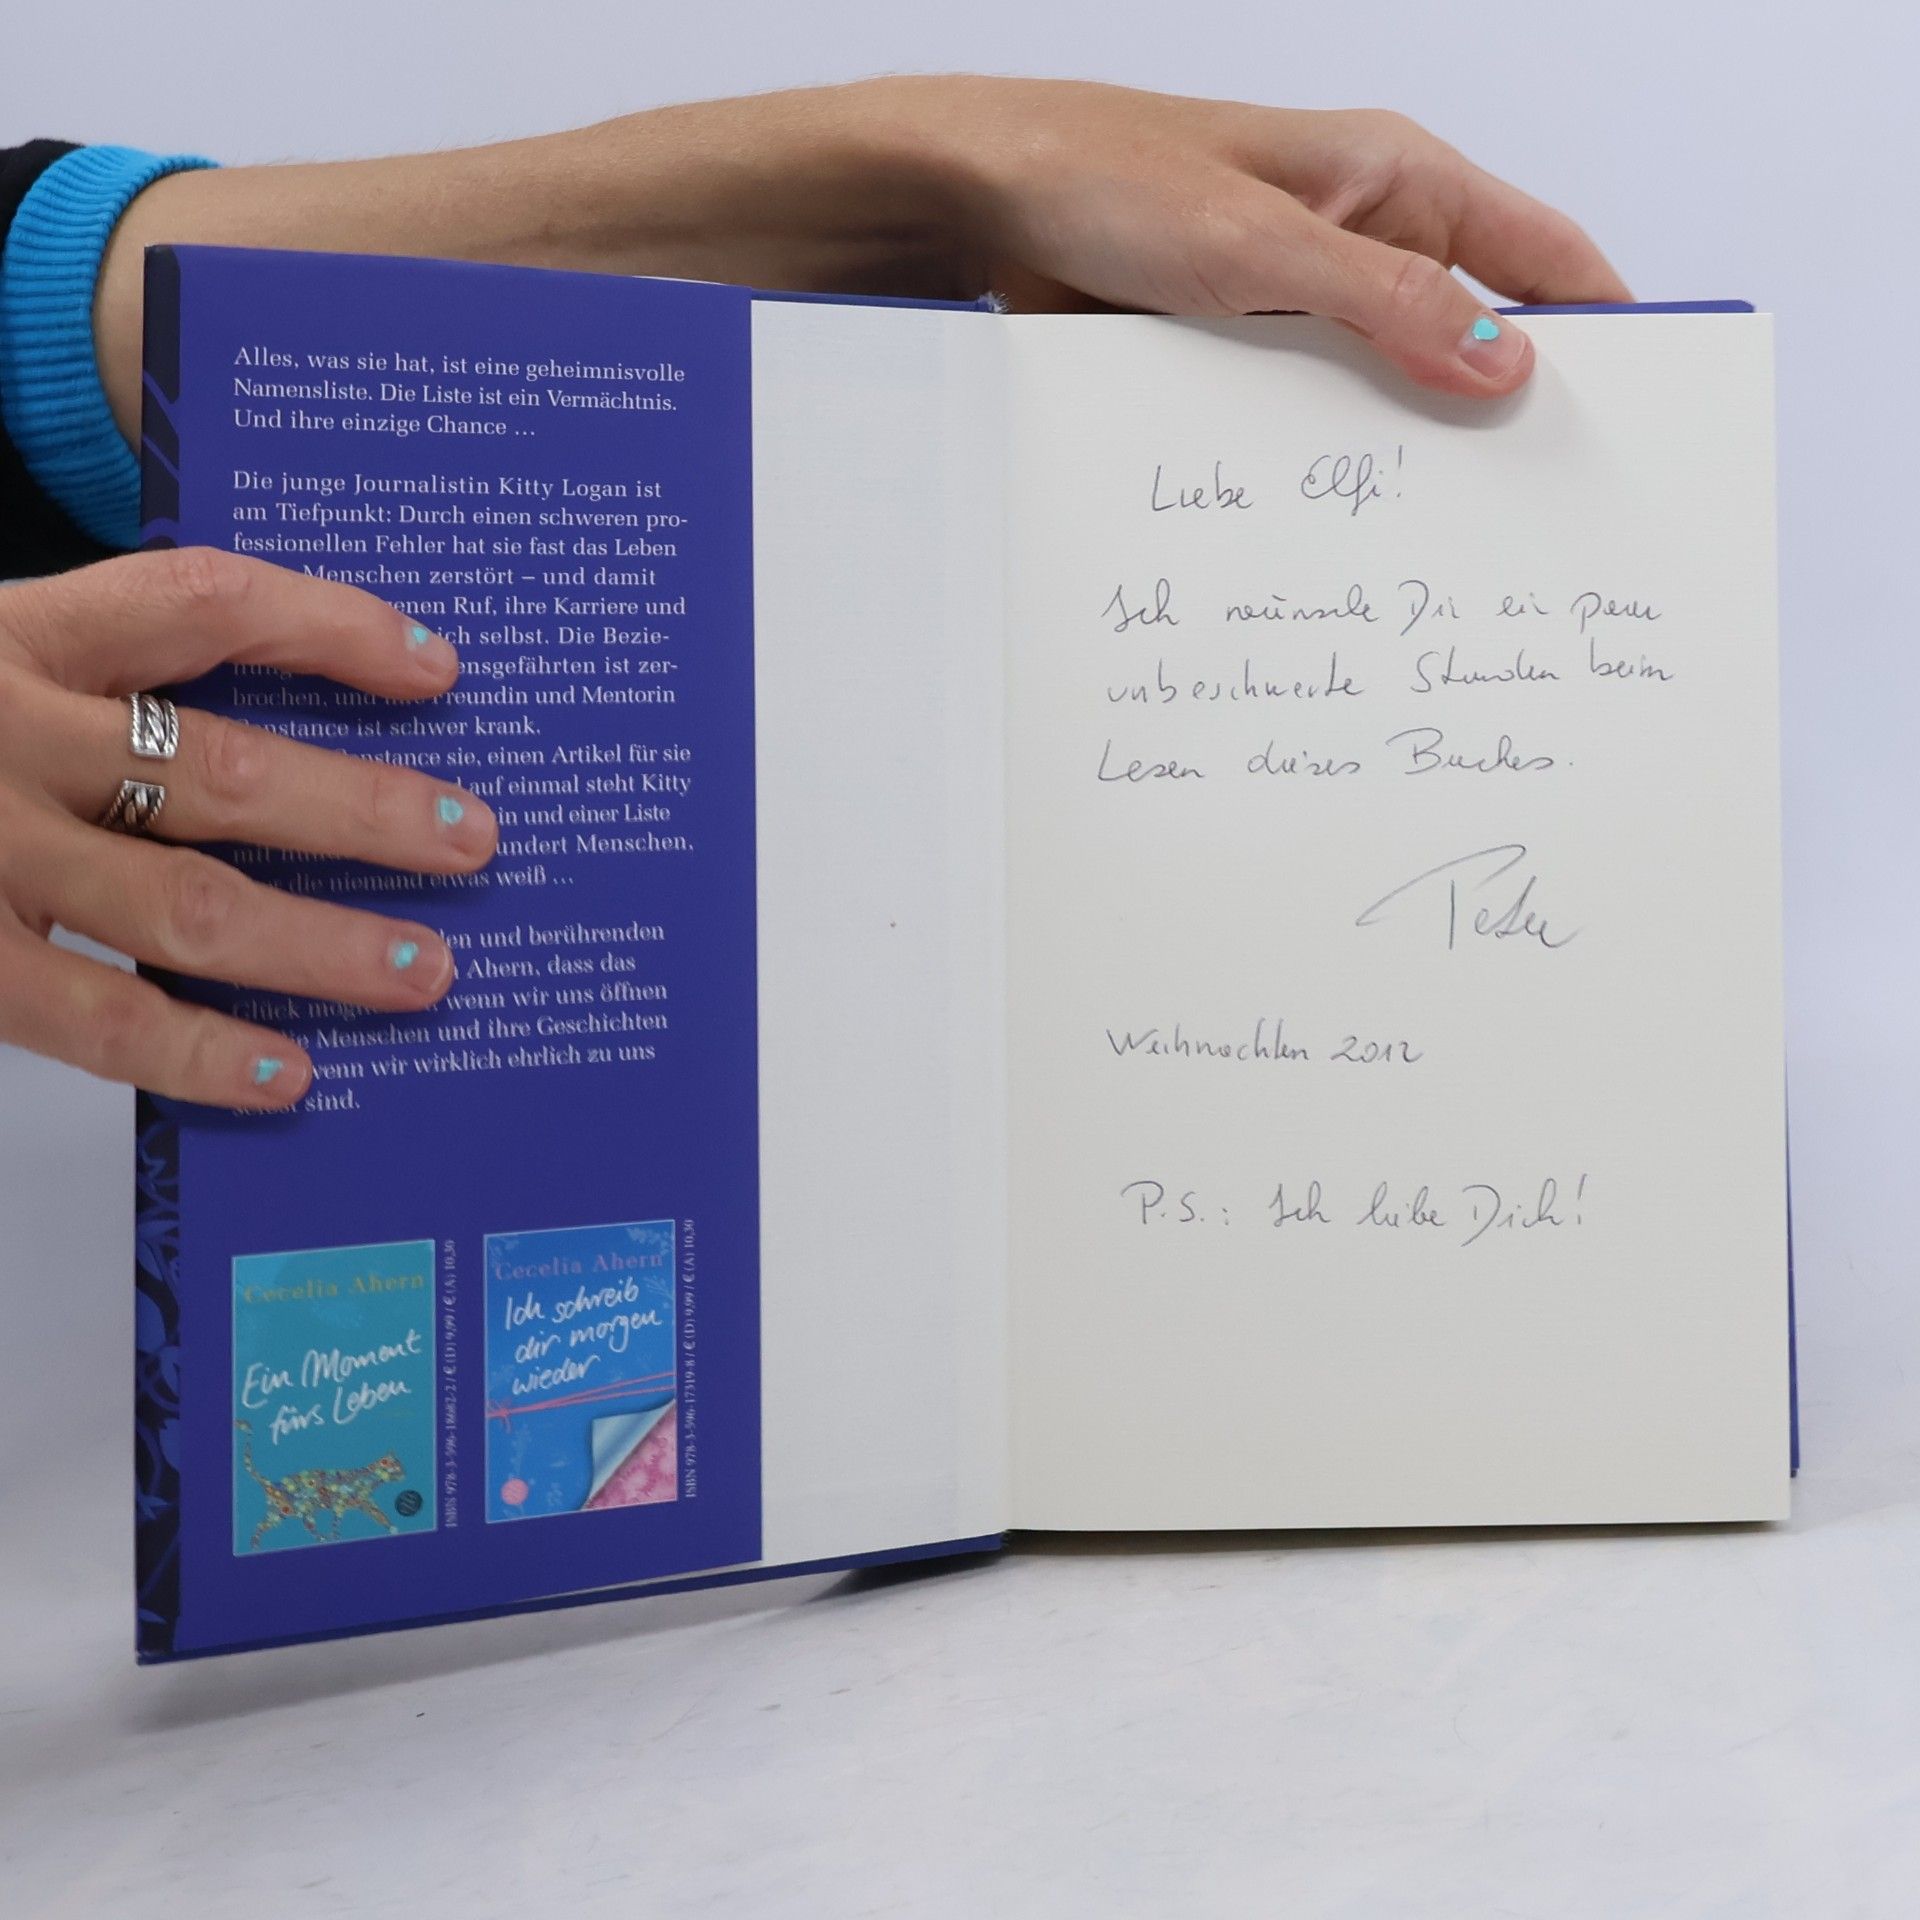 Alles, was sie hat, ist eine geheimnisvolle
Namensliste. Die Liste ist ein Vermächtnis.
Und ihre einzige Chance ...
Die junge Journalistin Kitty Logan ist
am Tiefpunkt: Durch einen schweren pro-
fessionellen Fehler hat sie fast das Leben
Menschen zerstört – und damit
Ruf, ihre Karriere und
selbst. Die Bezie-
ist zer-
brochen, und Freundin und Mentorin
Constance ist schwer krank.
Constance sie, einen Artikel für sie
auf einmal steht Kitty
und einer Liste
Menschen,
die niemand etwas weiß ...
und berührenden
Ahern, dass das
Glück wenn wir uns öffnen
Menschen und ihre Geschichten
wenn wir wirklich ehrlich zu uns
selbst sind.
Cecelia Ahern
Ein Moment
fürs Leben
ISBN 978-3-596-18682-2 / € (D) 9,99 / € (A) 10,30
Cecelia Ahern
Ich schreib
dir morgen
wieder
ISBN 978-3-596-17319-8 / € (D) 9,99 / € (A) 10,30
Liebe Elfi!
Ich wünsche Dir ein paar
unbeschwerte Stunden beim
Lesen dieses Buches.
Peter
Weihnachten 2012
P.S.: Ich liebe Dich!